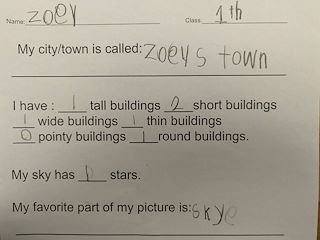 Name: zoey Class: 1th
My city/town is called: zoeys town
I have : 1 tall buildings 2 short buildings
1 wide buildings 1 thin buildings
0 pointy buildings 1 round buildings.
My sky has 0 stars.
My favorite part of my picture is: skye